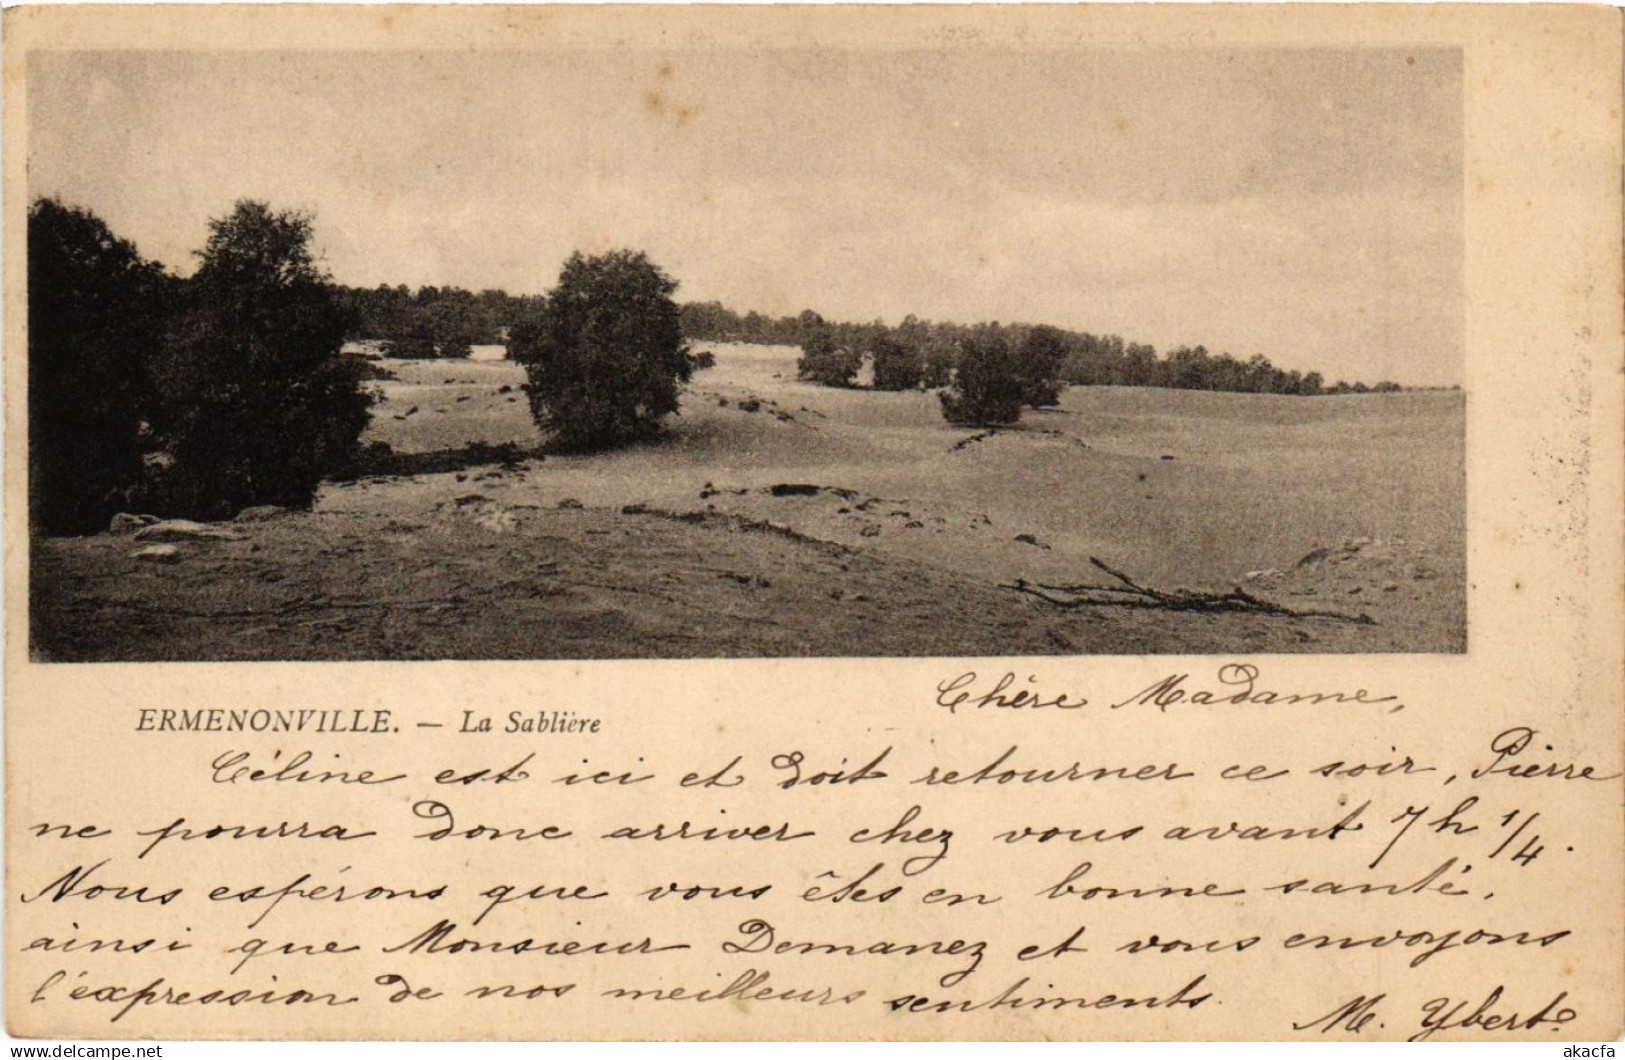 ERMENONVILLE. — La Sablière
Chère Madame,
Céline est ici et doit retourner ce soir, Pierre
ne pourra donc arriver chez vous avant 7 h 1/4.
Nous espérons que vous êtes en bonne santé,
ainsi que Monsieur Demanez et vous envoyons
l'expression de nos meilleurs sentiments.
M. Ybert
akacfa